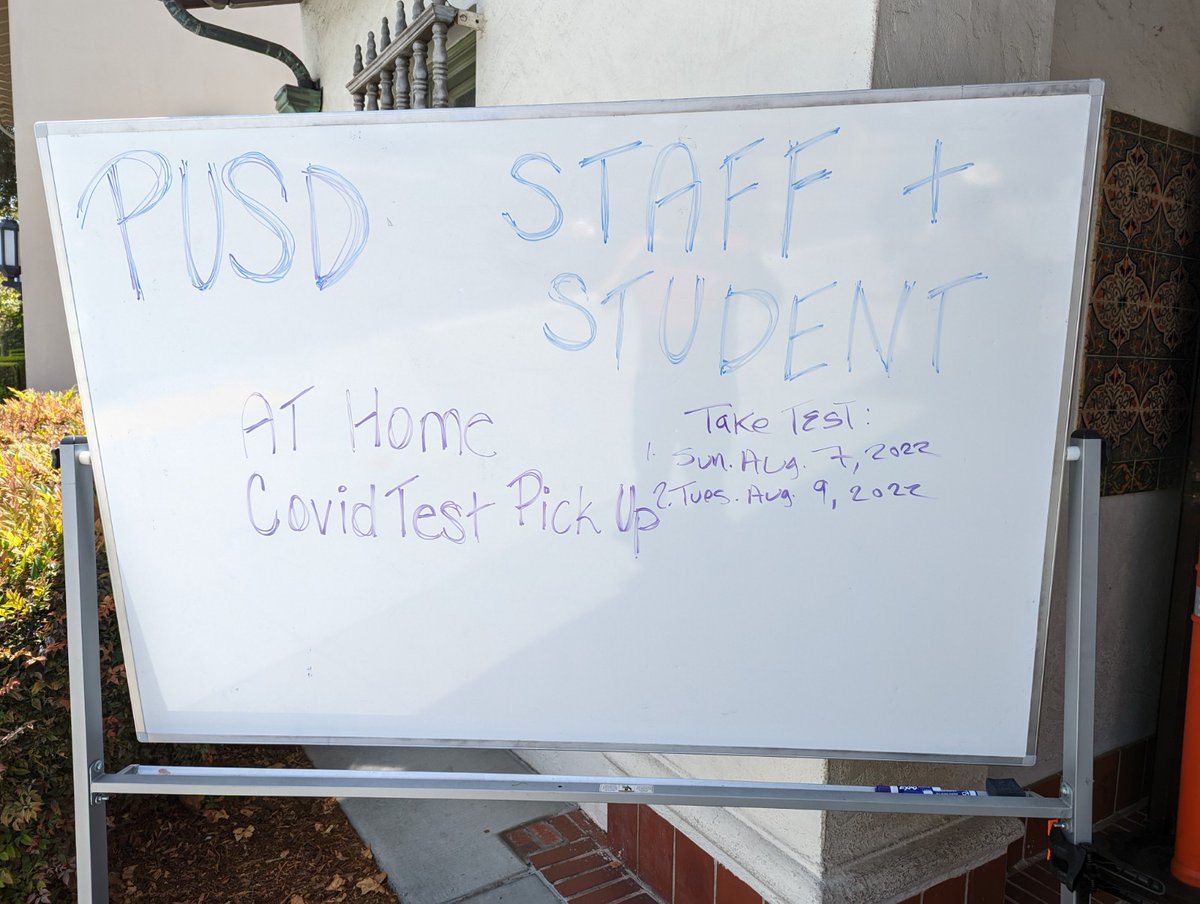 PUSD STAFF +
STUDENT
AT Home
Covid Test Pick Up
Take Test:
1. Sun. Aug. 7, 2022
2. Tues. Aug. 9, 2022
EXPO